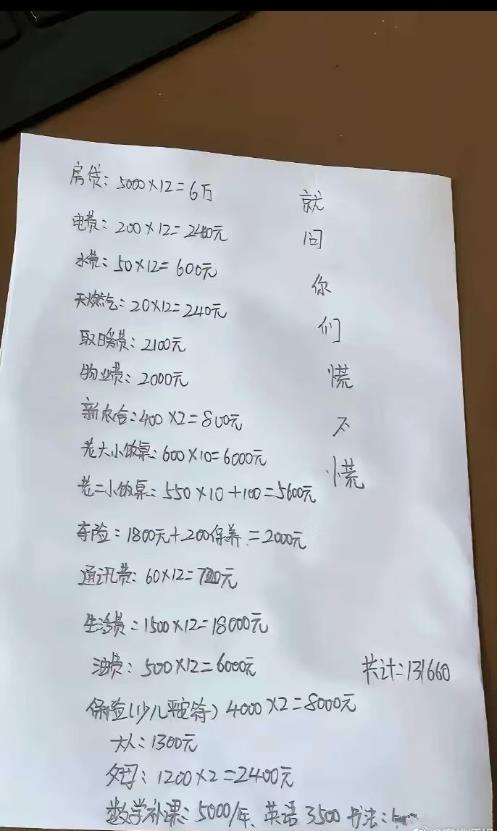 房贷：5000×12=6万
电费：200×12=2400元
水费：50×12=600元
天燃气：20×12=240元
取暖费：2100元
物业费：2000元
新农合：400×2=800元
老大小饭桌：600×10=6000元
老二小饭桌：550×10+100=5600元
车险：1800元+200保养=2000元
通讯费：60×12=720元
生活费：1500×12=18000元
油费：500×12=6000元
保险(少儿平安符) 4000×2=8000元
大人：1300元
父母：1200×2=2400元
数学补课：5000/年、英语3500 书法：
共计：131660
就
问
你
们
慌
不
慌